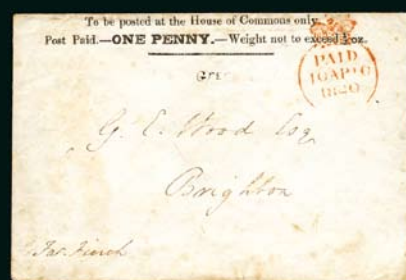 To be posted at the House of Commons only.
Post Paid.—ONE PENNY.—Weight not to exceed ½oz.
PAID
10 AP 10
1840
G. E. Wood Esq
Brighton